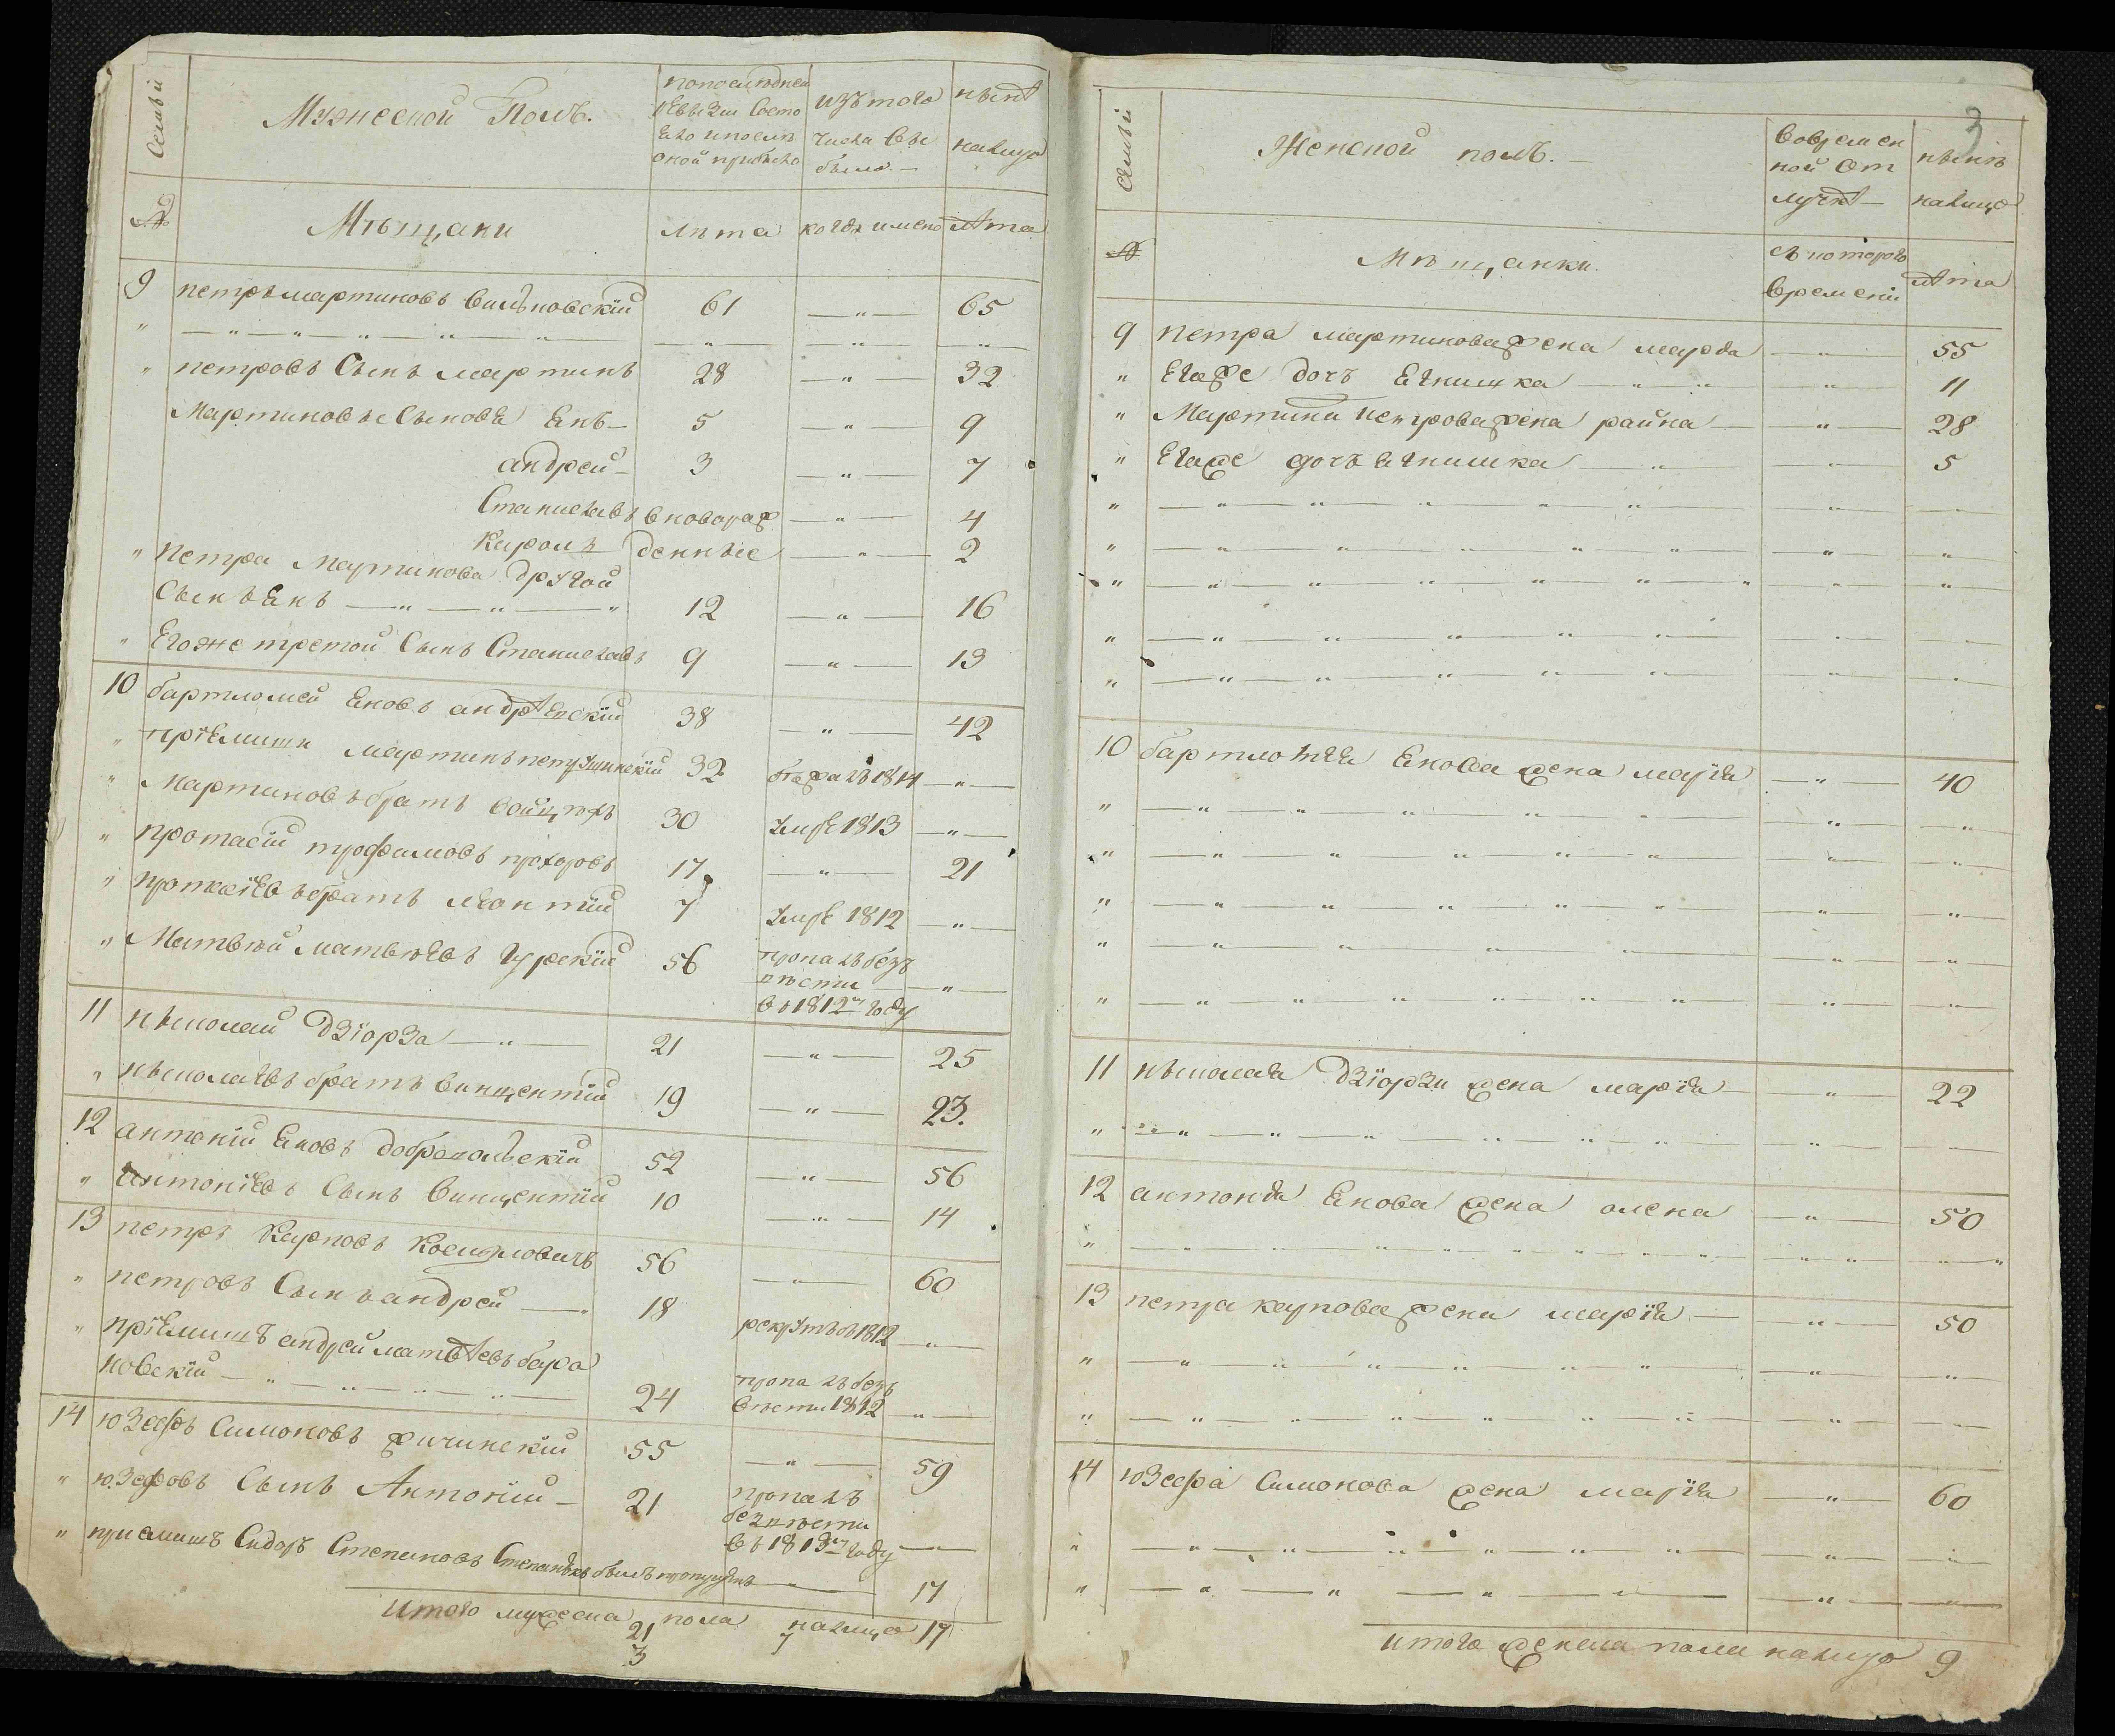 Семьи
Мужеской Полъ.
попоследней
Ревизии Состо
яло ипосле
оной прибыло
изътого
числа Вы
было.—
ныне
налицо
№
Мѣщани
лѣта
когда имено
лѣта
9 петръ мартиновъ Вильновскій 61 —"— 65
" —"—"—"—"—"— —"— —"— —"—
" петровъ Сынъ мартинъ 28 —"— 32
Мартиновы Сыновя Янъ— 5 —"— 9
андрей— 3 —"— 7
Станиславъ вноворож —"— 4
Кароль денные —"— 2
" Петра Мартинова другой
Сынъ Янъ —"—"—" 12 —"— 16
" Егоже третой Сынъ Станиславъ 9 —"— 13
10 бартломей Яновъ андрѣевскій 38 —"— 42
" пріемышъ Мартинъ 32 бежалъ 1814 —"—
" Мартиновъ братъ Войцѣхъ 30 Умре 1813 —"—
" протасій трофимовъ прохоровъ 17 —"— 21
" братъ леонтій 7 Умре 1812 —"—
" Матвѣй матвѣевъ Гурскій 56 пропалъ безъ
вѣсти —"—
въ 1812м году
11 Мыколай Дзіорза —"— 21 —"— 25
" Мыколаевъ братъ Винцентій 19 —"— 23.
12 антоній Яновъ добровольскій 52 —"— 56
" антоніевъ Сынъ Винцентій 10 —"— 14
13 петръ Карповъ 56 —"— 60
" петровъ Сынъ андрей —" 18 рекрутъ въ 1812 —"—
" пріемышъ андрей матвѣевъ бара
новскій —"—"—"—"— 24 пропалъ безъ
вѣсти 1812 —"—
14 юзефъ Симоновъ 55 —"— 59
" юзефовъ Сынъ Антоній— 21 пропалъ
безвѣсти
въ 1813м году ——
" приемышъ Сидоръ Степановъ былъ пропущенъ —"— 17
Итого мужеска пола налицо 17
21
3 7
3
Семьи
Женской полъ.—
Вовремен
ной От
лучке—
ныне
налицо
№
Мѣщанки.
съ котораго
Времени
лѣта
9 Петра мартинова жена марта —"— 55
" Его же дочъ Ягнишка —"—"— —"— 11
" Мартина петрова жена райна — —"— 28
" Его же дочъ Ягнишка —"— —"— 5
" —"—"—"—"—"— —"— —"—
" —"—"—"—"—"— —"— —"—
" —"—"—"—"—"— —"— —"—
" —"—"—"—"—"— —"— —"—
" —"—"—"—"—"— —"— —"—
10 бартломея Янова жена марія —"— 40
" —"—"—"—"—"— —"— —"—
" —"—"—"—"—"— —"— —"—
" —"—"—"—"—"— —"— —"—
" —"—"—"—"— —"— —"—
" —"—"—"—"—"—"— —"— —"—
11 Мыколая Дзіорзи жена марія — —"— 22
" —"—"—"—"—"—"— —"— ——
12 антонія Янова жена олена —"— 50
" —"—"—"—"—"—"— —"—"— —"—
13 петра карпова жена марія — —"— 50
" —"—"—"—"—"—"— —"— —"—
" —"—"—"—"—"—"— —"— —"—
14 юзефа Симонова жена марія —"— 60
" —"—"—"—"—"—"— —"— —"—
" —"—"—"—"— —"— —"—
итого женска пола налицо 9